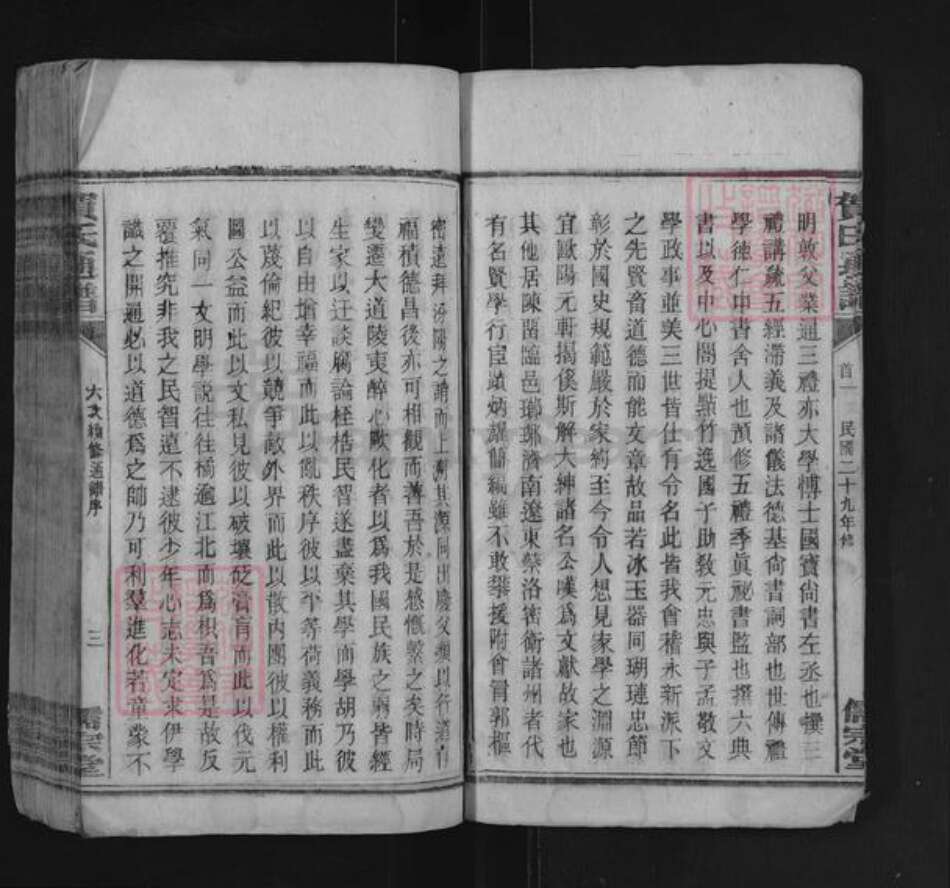 賀氏通譜
首一
民國二十九年修
儒宗堂
明敦父業通三禮亦大學博士國寶尚書左丞也撰三
禮講疏五經滯義及諸儀法德基尚書詞部也世傳禮
學德仁中書舍人也預修五禮季真祕書監也撰六典
書以及中心閣提點竹逸國子助敎元忠與子孟敬文
學政事並美三世皆仕有令名此皆我會稽永新派下
之先賢畜道德而能文章故品若冰玉器同瑚璉忠節
彰於國史規範嚴於家約至今令人想見家學之淵源
宜歐陽元軒揭傒斯解大紳諸名公嘆爲文獻故家也
其他居陳菑臨邑瑯琊濟南遼東蔡洛密衛諸州者代
有名賢學行宦蹟炳諸簡編雖不敢攀援附會冒郭樞
密遠拜汾陽之誚而上溯其源同出慶父類以行道有
福積德昌後亦可相觀而善吾於是感慨繫之矣時局
變遷大道陵夷醉心歐化者以爲我國民族之弱皆經
生家以迂談腐論桎梏民智遂盡棄其學而學胡乃彼
以自由增幸福而此以亂秩序彼以平等荷義務而此
以蔑倫紀彼以競爭敵外界而此以散內團彼以權利
圖公益而此以文私見彼以破壞砭膏肓而此以伐元
氣同一文明學說往往橘逾江北而爲枳吾爲是故反
覆推究非我之民智遠不逮彼少年心志未定求伊學
識之開通必以道德爲之師乃可利羣進化若章蒙不
賀氏通譜
六次續修通譜序
三
儒宗堂